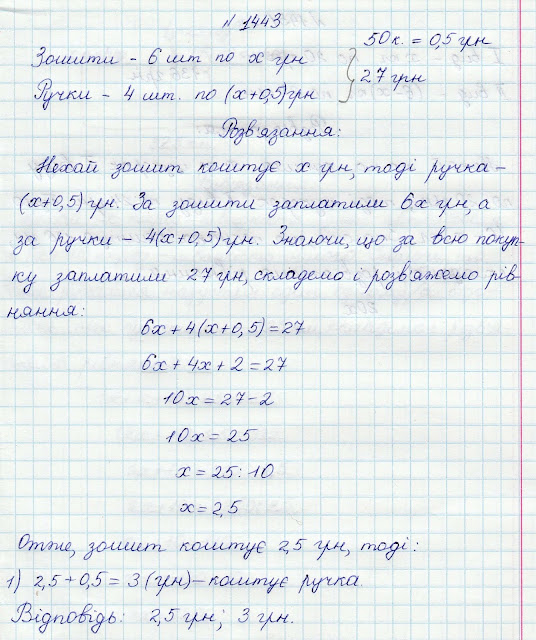 № 1443
50 к. = 0,5 грн
Зошити - 6 шт по x грн
27 грн
Ручки - 4 шт. по (x+0,5) грн
Розв'язання:
Нехай зошит коштує x грн, тоді ручка -
(x+0,5) грн. За зошити заплатили 6x грн, а
за ручки - 4(x+0,5) грн. Знаючи, що за всю покуп-
ку заплатили 27 грн, складемо і розв'яжемо рів-
няння:
6x + 4(x+0,5) = 27
6x + 4x + 2 = 27
10x = 27 - 2
10x = 25
x = 25 : 10
x = 2,5
Отже, зошит коштує 2,5 грн, тоді:
1) 2,5 + 0,5 = 3 (грн) - коштує ручка.
Відповідь: 2,5 грн; 3 грн.